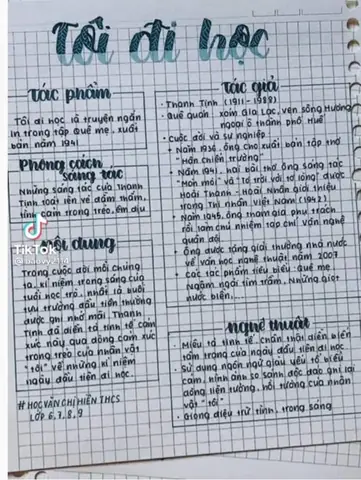 Tôi đi học
tác phẩm
Tôi đi học là truyện ngắn
in trong tập Quê mẹ, xuất
bản năm 1941
Phong cách
sáng tác
Những sáng tác của Thanh
Tịnh toát lên vẻ đằm thắm,
tình cảm trong trẻo, êm dịu
TikTok
nội dung
Trong cuộc đời mỗi chúng
ta, kỉ niệm trong sáng của
tuổi học trò, nhất là buổi
tựu trường đầu tiên thường
được ghi nhớ mãi. Thanh
Tịnh đã diễn tả tinh tế cảm
xúc này qua dòng cảm xúc
trong trẻo của nhân vật
"tôi" về những kỉ niệm
ngày đầu tiên đi học.
#HOCVANCHIHIENTHCS
LỚP 6,7,8,9
tác giả
Thanh Tịnh (1911 - 1988)
Quê quán: xóm Gia Lạc, ven sông Hương
ngoại ô thành phố Huế
Cuộc đời và sự nghiệp
Năm 1936, ông cho xuất bản tập thơ
"Hận chiến trường"
Năm 1941, hai bài thơ ông sáng tác
"Mòn mỏi" và "Tơ trời với tơ lòng" được
Hoài Thanh - Hoài Chân giới thiệu
trong Thi nhân Việt Nam (1942)
Năm 1945, ông tham gia phụ trách
rồi làm chủ nhiệm tạp chí văn nghệ
quân đội
Ông được tặng giải thưởng nhà nước
về văn học nghệ thuật năm 2007
Các tác phẩm tiêu biểu: Quê mẹ,
Ngậm ngải tìm trầm, Những giọt
nước biển, ...
Nghệ thuật
Miêu tả tinh tế, chân thật diễn biến
tâm trạng của ngày đầu tiên đi học
Sử dụng ngôn ngữ giàu yếu tố biểu
cảm, hình ảnh so sánh độc đáo ghi lại
dòng liên tưởng, hồi tưởng của nhân
vật "tôi"
Giọng điệu trữ tình, trong sáng